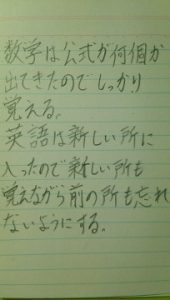 数学は公式が何個か
出てきたのでしっかり
覚える。
英語は新しい所に
入ったので新しい所も
覚えながら前の所も忘れ
ないようにする。